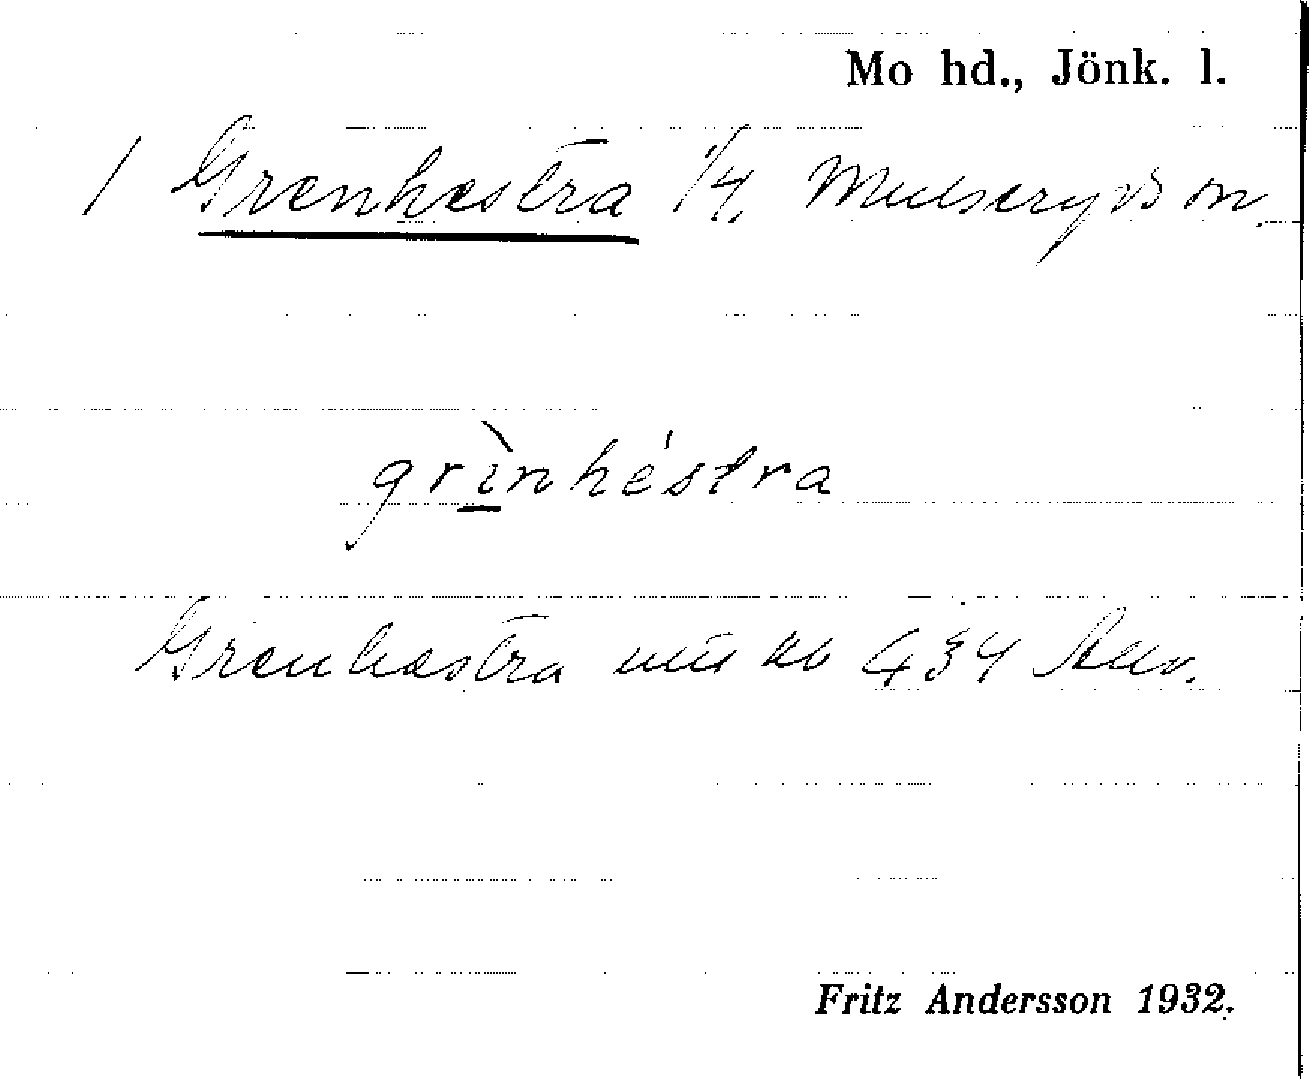 Mo hd., Jönk. l.
1 Grenhestra 1/4. Mulseryds sn.
grìnhéstra
Grenhestra 434
Fritz Andersson 1932.